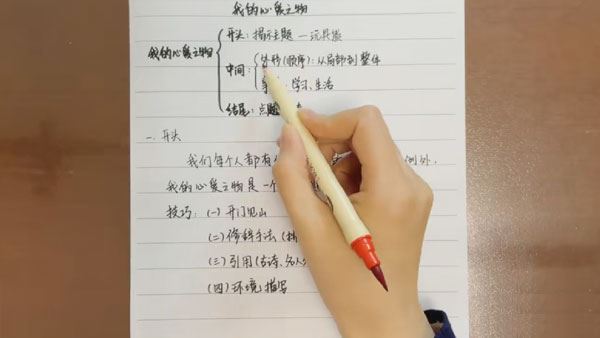 我的心爱之物
开头：揭示主题 — 玩具熊
我的心爱之物
中间：
(顺序)：从局部到整体
学习、生活
结尾：点题
一、开头
我们每个人都有 例外，
我的心爱之物是一个
技巧：(一)开门见山
(二)修辞手法(
(三)引用(古诗、名人
(四)环境描写